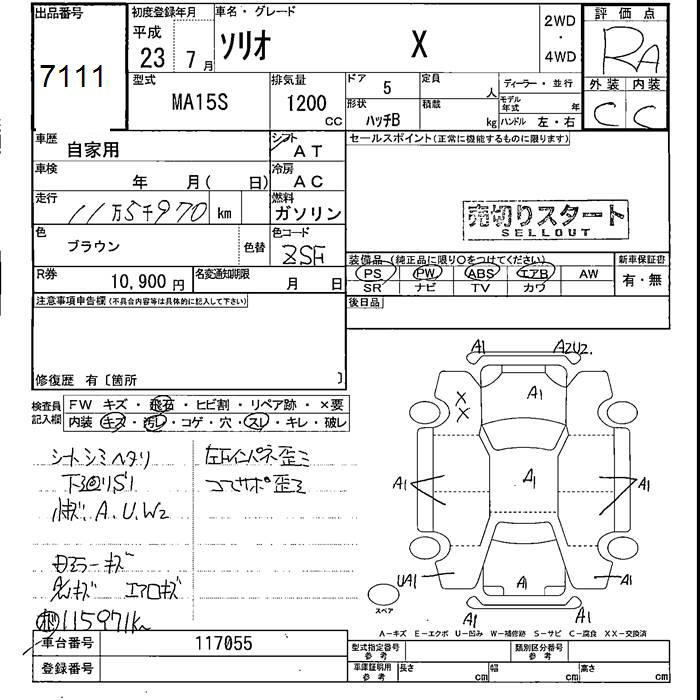 出品番号 初度登録年月 車名・グレード 2WD・4WD 評価点
7111 平成 23 7月 ソリオ X RA
型式 排気量 ドア 5 定員 人 ディーラー・並行 外装 内装
MA15S 1200 cc 形状 ハッチB 積載 kg モデル年式 年 ハンドル 左・右 C C
車歴 自家用 シフト AT セールスポイント(正常に機能するものに限ります)
車検 年 月( 日) 冷房 AC
走行 11万5千970 km 燃料 ガソリン
売切りスタート
SELLOUT
色 ブラウン 色替 色コード ZSF
装備品 (純正品に限り○をつけてください) 新車保証書
R券 10,900円 名変通知期限 月 日 PS PW ABS エアB AW 有・無
SR ナビ TV カワ
注意事項申告欄 (不具合内容等は具体的に記入して下さい) 後日品
修復歴 有〔箇所 〕
検査員記入欄 FW キズ・飛石・ヒビ割・リペア跡・×要
内装 キズ・汚レ・コゲ・穴・スレ・キレ・破レ
A1 A2U2.
A1
X
X
シートシミヘタリ 左右インパネ歪ミ
下廻リS1 コアサポ歪ミ
A1 A1 A1
A.U.W2
ミラーキズ
エアロキズ
UA1 A1 A1
スペア
115971km
A1 A1
A-キズ E-エクボ U-凹み W-補修跡 S-サビ C-腐食 XX-交換済
車台番号 117055 型式指定番号 参考 類別区分番号 参考
登録番号 車庫証明用 参考 長さ cm 幅 cm 高さ cm